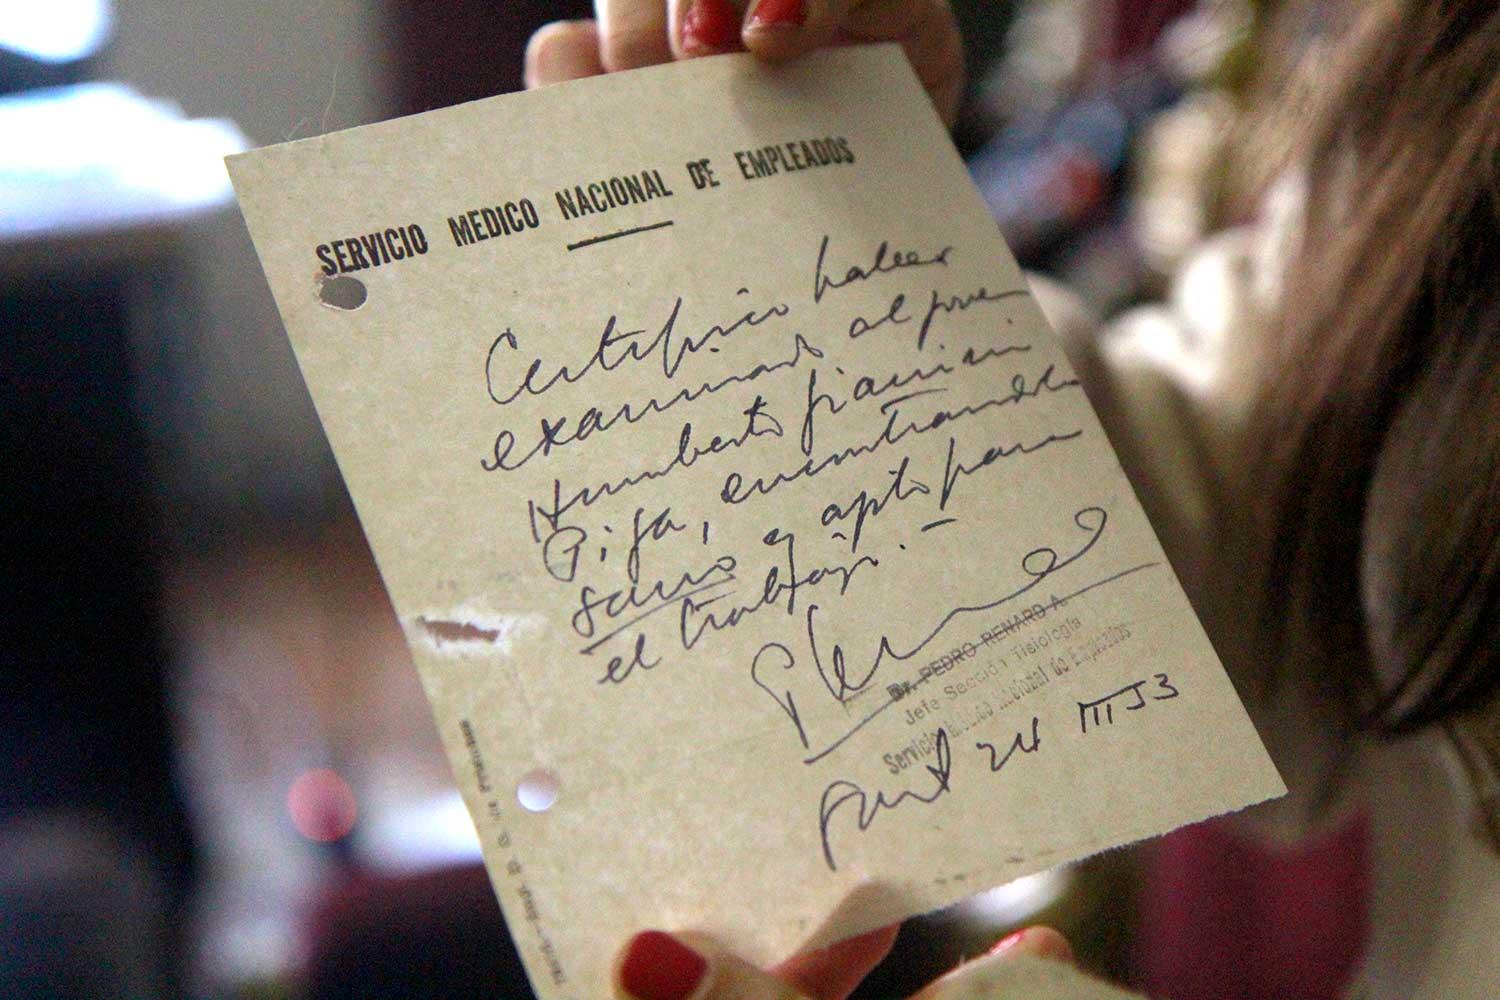 SERVICIO MEDICO NACIONAL DE EMPLEADOS
Certifico haber
examinado al joven
Humberto Giannini
Piga, encontrándolo
sano y apto para
el trabajo. —
Dr. PEDRO RENARD A.
Jefe Sección Tisiología
Servicio Médico Nacional de Empleados
24 III 53